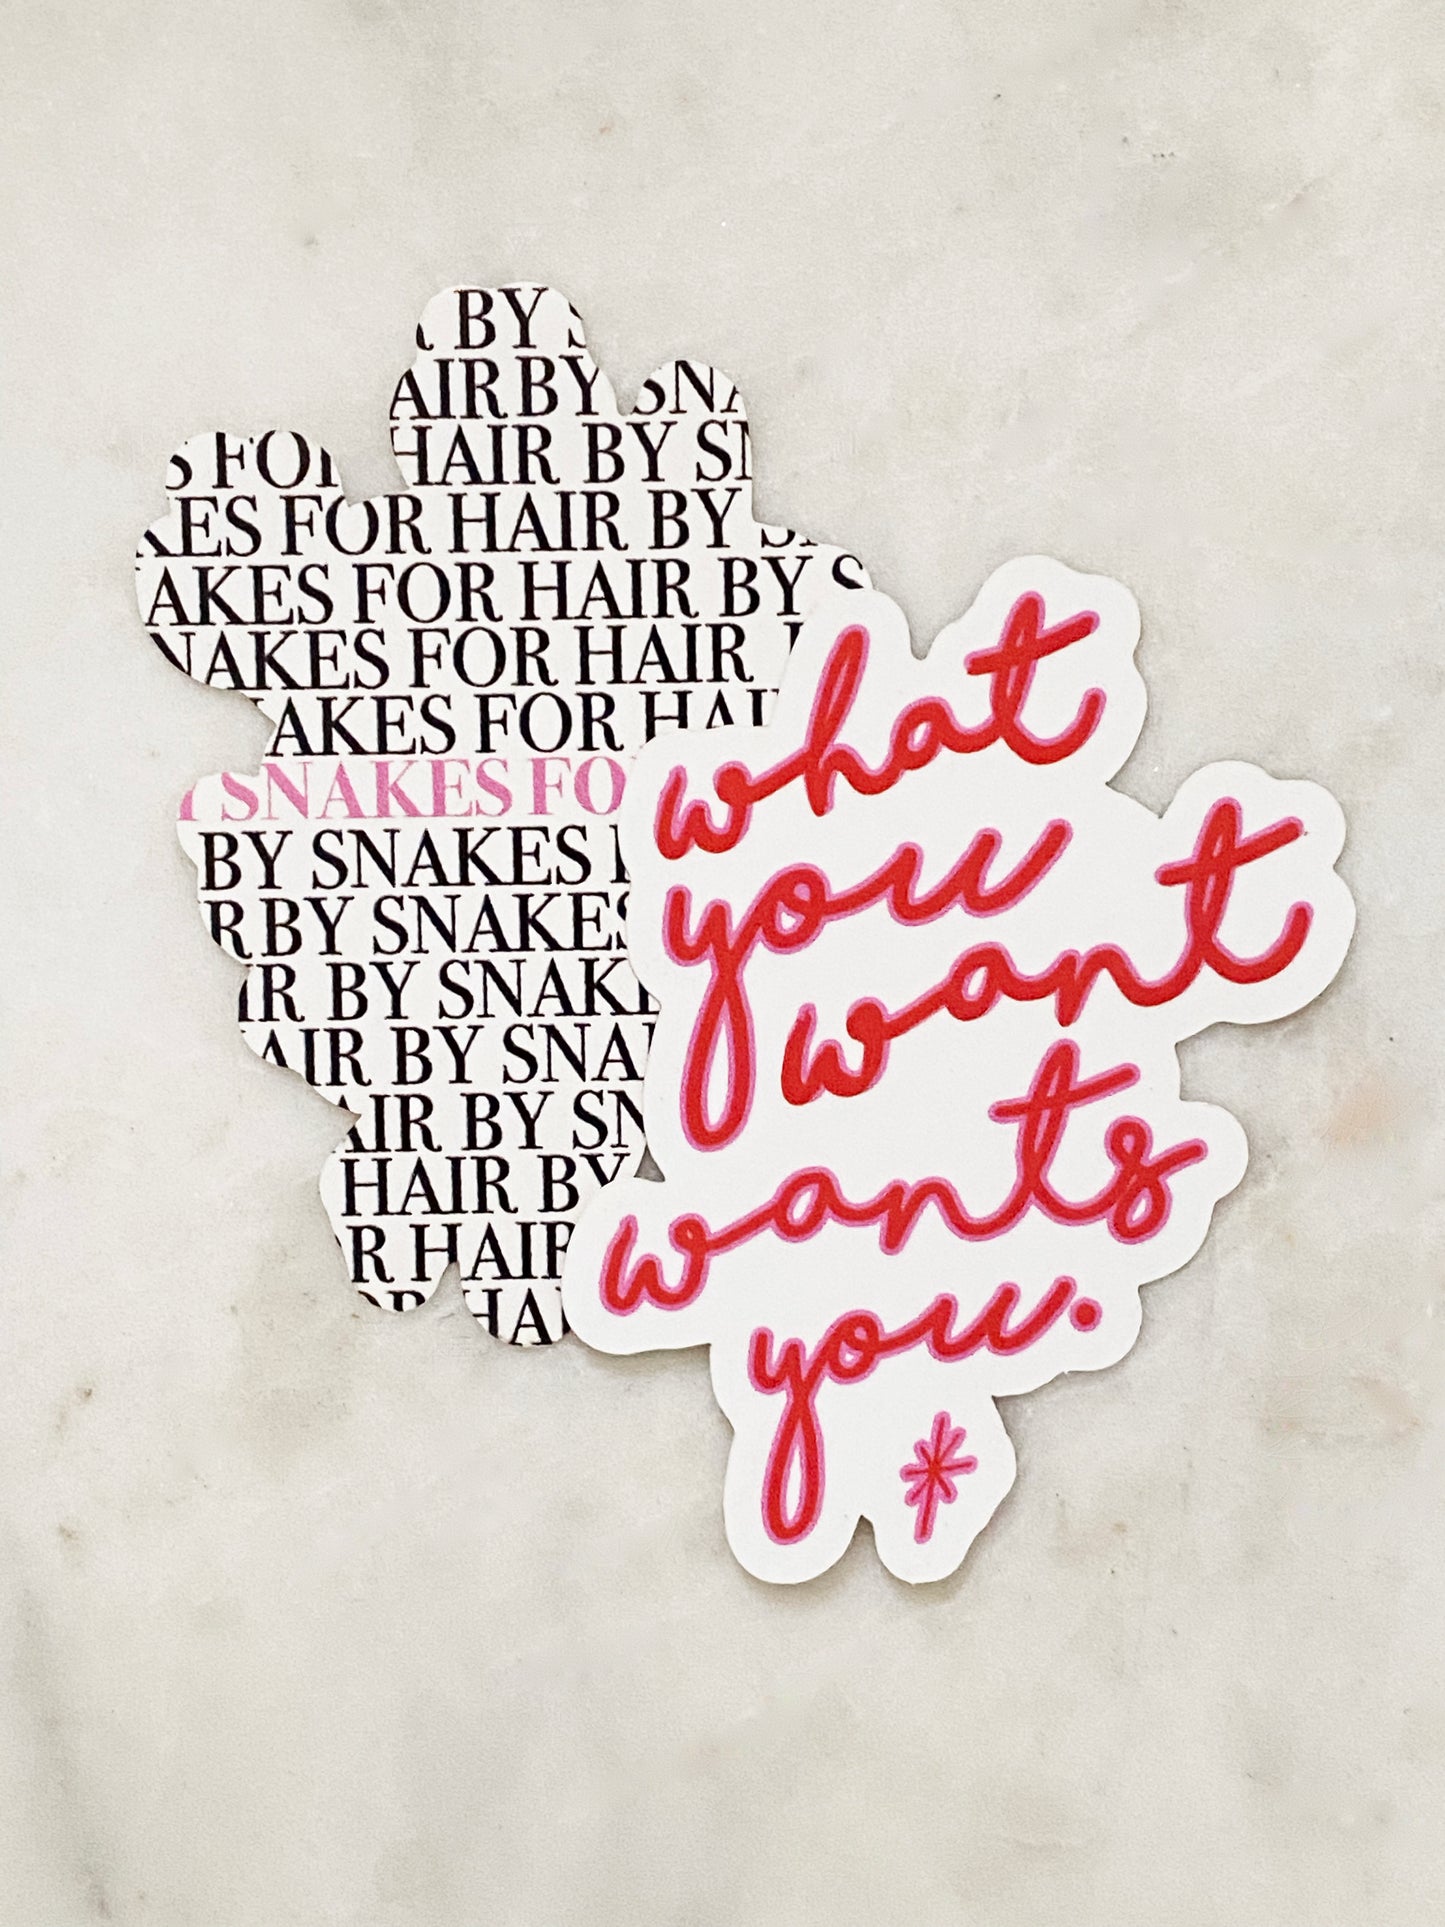 BY
AIR BY SNA
S FOR HAIR BY SN
KES FOR HAIR BY S
AKES FOR HAIR BY S
NAKES FOR HAIR
AKES FOR HAI
Y SNAKES FO
BY SNAKES
R BY SNAKES
IR BY SNAK
AIR BY SNA
AIR BY SN
HAIR BY
R HAIR
OR HA
what
you
want
wants
you.